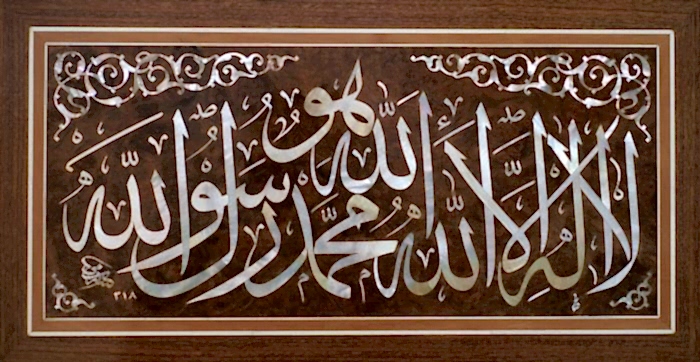 هو
الله
لا إله إلا الله محمد رسول الله
٣١٨